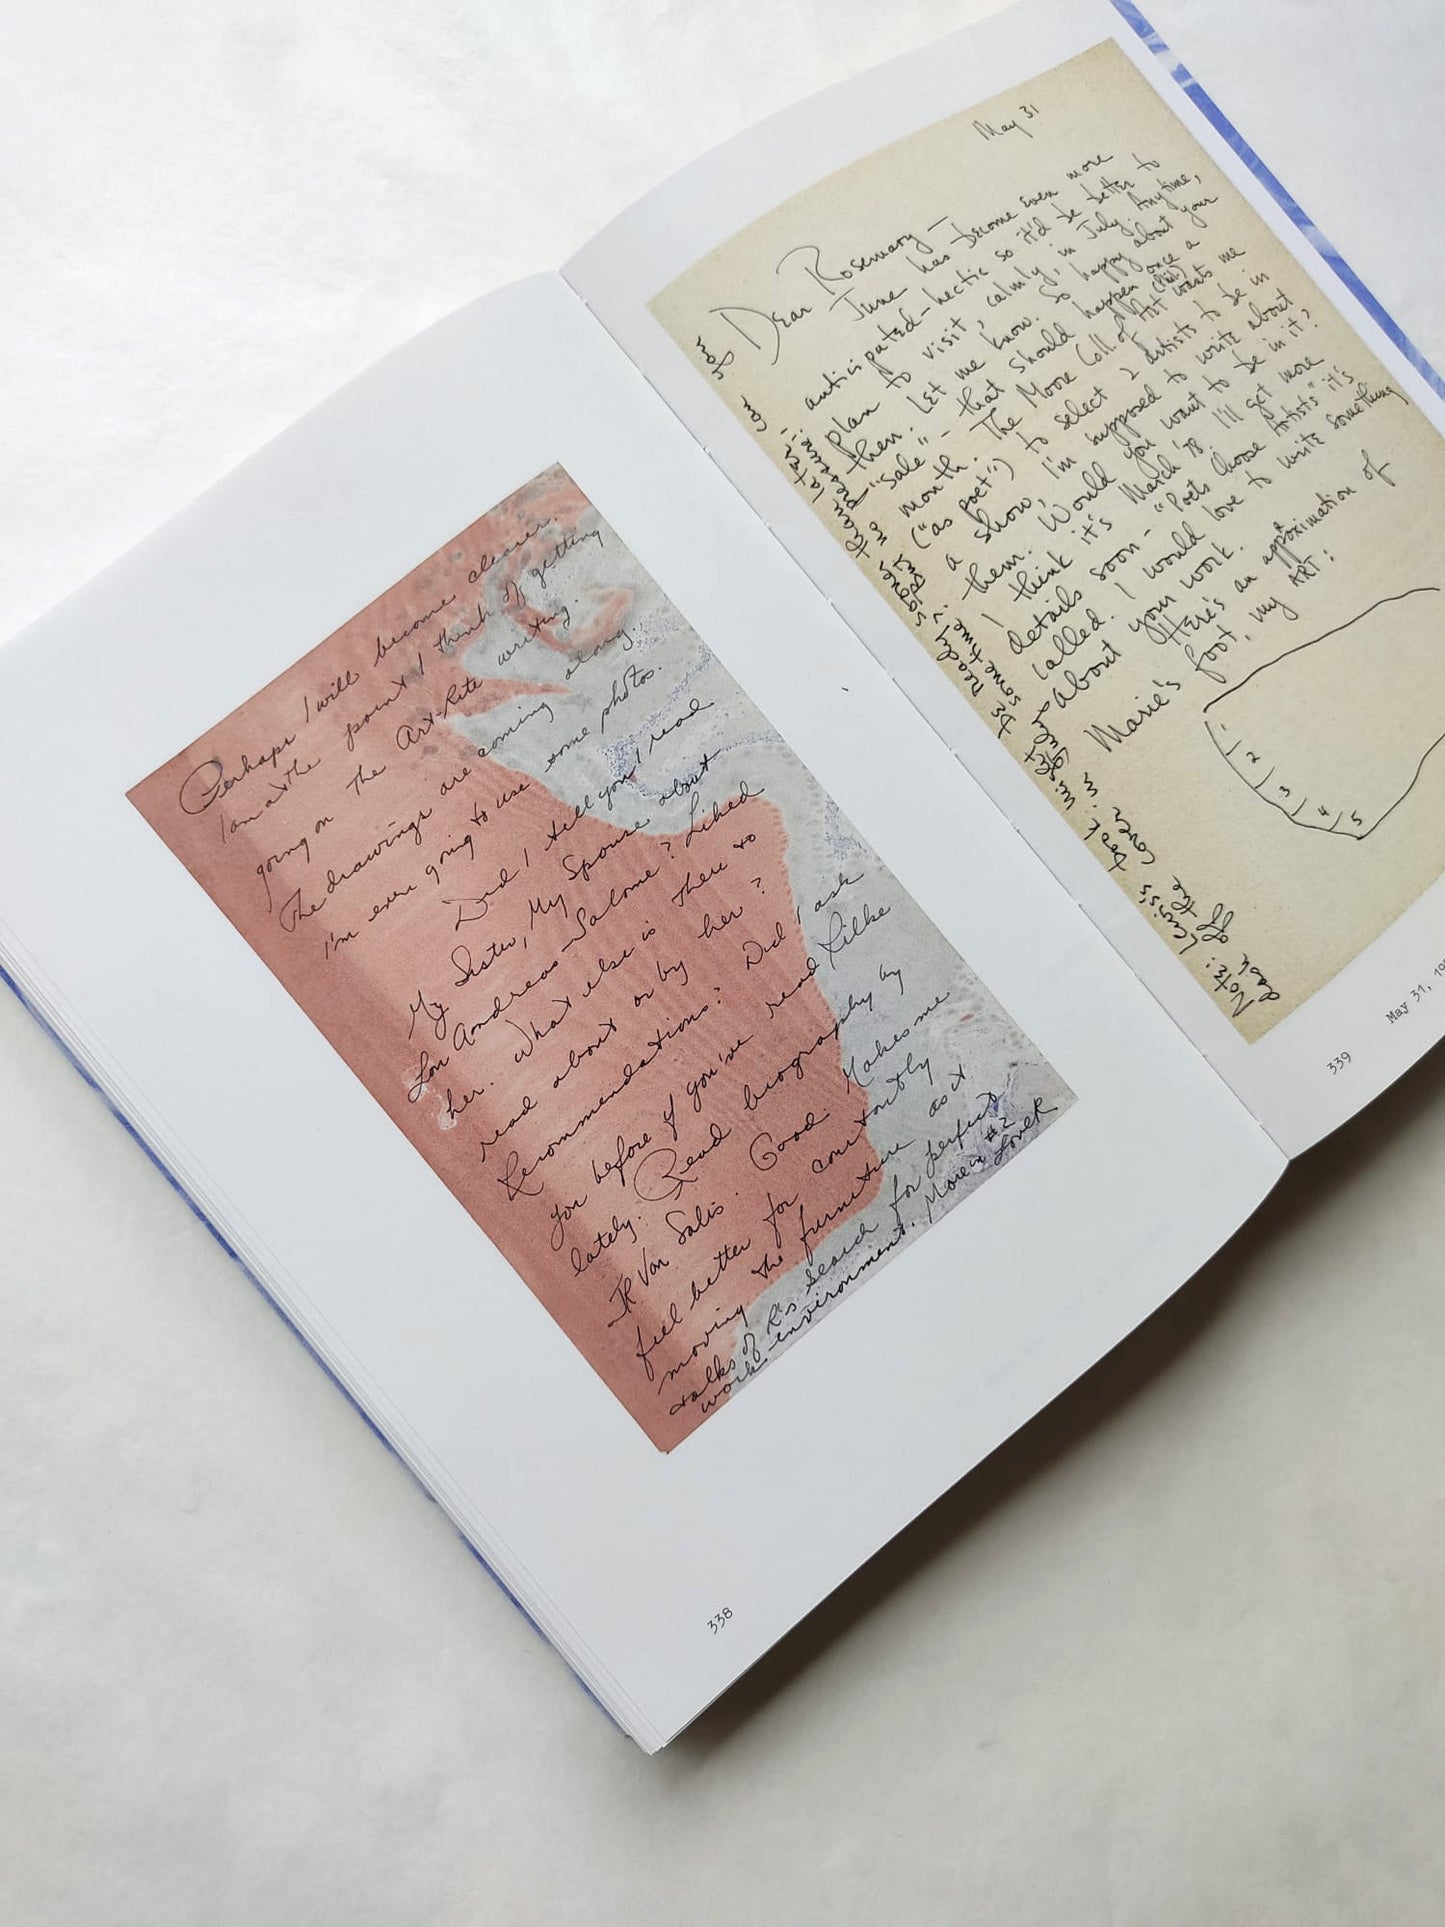 Perhaps I will become clearer.
I am at the point I think of getting
going on the Art-Rite writing.
The drawings are coming along.
I'm even going to use some photos.
Did I tell you I read
My Sister, My Spouse about
Lou Andreas-Salome? Liked
her. What else is there to
read about or by her?
Recommendations? Did I ask
you before if you've read Rilke
lately. Read biography by
JR Von Salis. Good. Makes me
feel better for constantly
moving the furniture as it
talks of R's search for perfect
work environment. More in #2
Love R
338
May 31
Dear Rosemary —
June has become even more
anticipated-hectic so it'd be better to
plan to visit, calmly, in July. Anytime,
then. Let me know. So happy about your
"sale" — that should happen once a
month. The Moore Coll. of Art wants me
("as poet") to select 2 artists to be in
a show, I'm supposed to write about
them. Would you want to be in it?
I think it's March '78. I'll get more
details soon — "Poets Choose Artists" it's
called. I would love to write something
about your work.
Here's an approximation of
Marie's foot, my ART:
1
2
3
4
5
Note: Lewis's book might
be ready sooner than later;
can
of the cover in
sometime? But no pressure.
339
May 31, 19